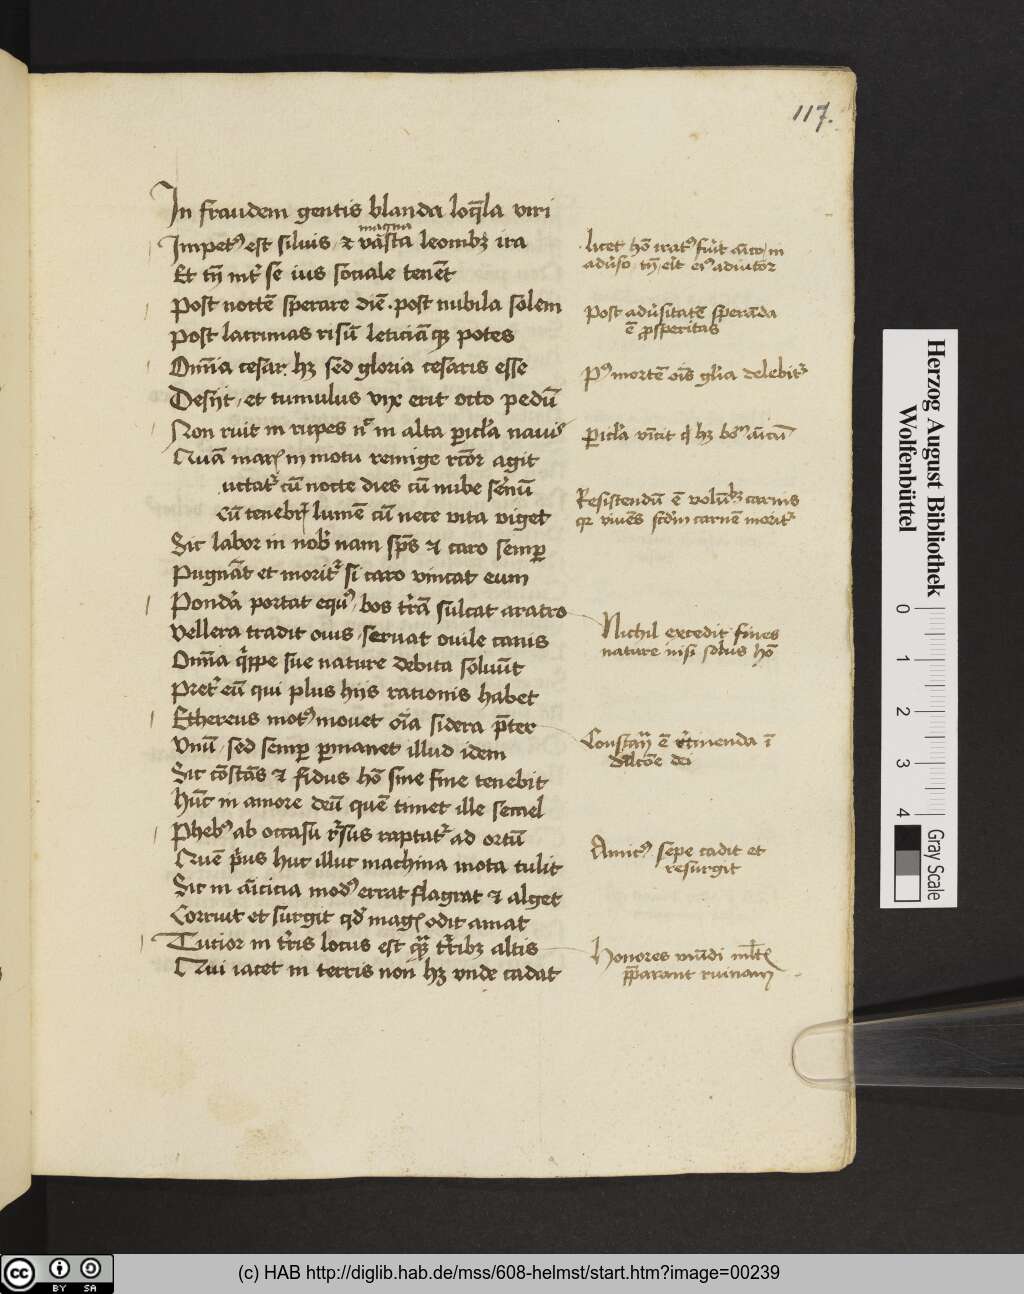 117.
In fraudem gentis blanda loq̄la viri
magna
Impetꝰ est siluis / ⁊ vāsta leonibꝫ ira
Et tn̄ int̉ se ius sociale tenēt
Post noctē sperare diē . post nubila solem
Post lacrimas risū leticiāqꝫ potes
Om̄ia cesar hꝫ sed gloria cesaris esse
Desijt / et tumulus vix erit octo pedū
Non ruit in rupes nͨ in alta pericl̉a nauis
Quā mar̉ in motu remige rc̄or agit
uctat̉ cū nocte dies cū nube ser̉nū
Cū tenebr̉ lumē cū nece vita viget
Sic labor in nob̉ nam sp̄s ⁊ caro semꝑ
Pugnāt et morit̉ si caro vincat eum
Pondā portat equꝰ / bos tr̄ā sulcat aratro
Vellera tradit ouis / seruat ouile canis
Om̄ia q̉ppe sue nature debita soluūt
Pret̉ eū qui plus hijs rationis habet
Ethereus motꝰ mouet oīa sidera p̄ter
Vnū / sed semꝑ ꝑmanet illud idem
Sic cōstās ⁊ fidus hō sine fine tenebit
Hūc in amore deū quē timet ille semel
Phebꝰ ab occasu r̉sus raptat̉ ad ortū
Quē p̉us huc illuc machina mota tulit
Sic in aīcicia modꝰ errat flagrat ⁊ alget
Corruit et surgit qd̉ magꝭ odit amat
Tutior in tr̄is locus est qͣꝫ tr̉ribꝫ altis
Qui iacet in terris non hꝫ vnde cadat
licet hō iratꝰ fu̓it aīco / in
adu̓so / tn̄ er̉t eiꝰ adiutor
Post adu̓sitatē sperāda
ē ꝓsperitas
Pꝰ mortē oīs gl̉ia delebit̉
ꝑicl̉a vīcit q̉ hꝫ bo᷑ aīcū
Resistendū ē volūtꝫ carnis
qr viuēs scd̉m carnē morit̉
Nichil excedit fines
nature nisi solus hō
Constan̄ ē r̉tinenda ī
dil̄cōe dei
Amicꝰ sepe cadit et
resurgit
Honores mūdi ml̉tꝭ
p̄parant ruinam
Herzog August Bibliothek
Wolfenbüttel
0 1 2 3 4
Gray Scale
cc BY SA
(c) HAB http://diglib.hab.de/mss/608-helmst/start.htm?image=00239